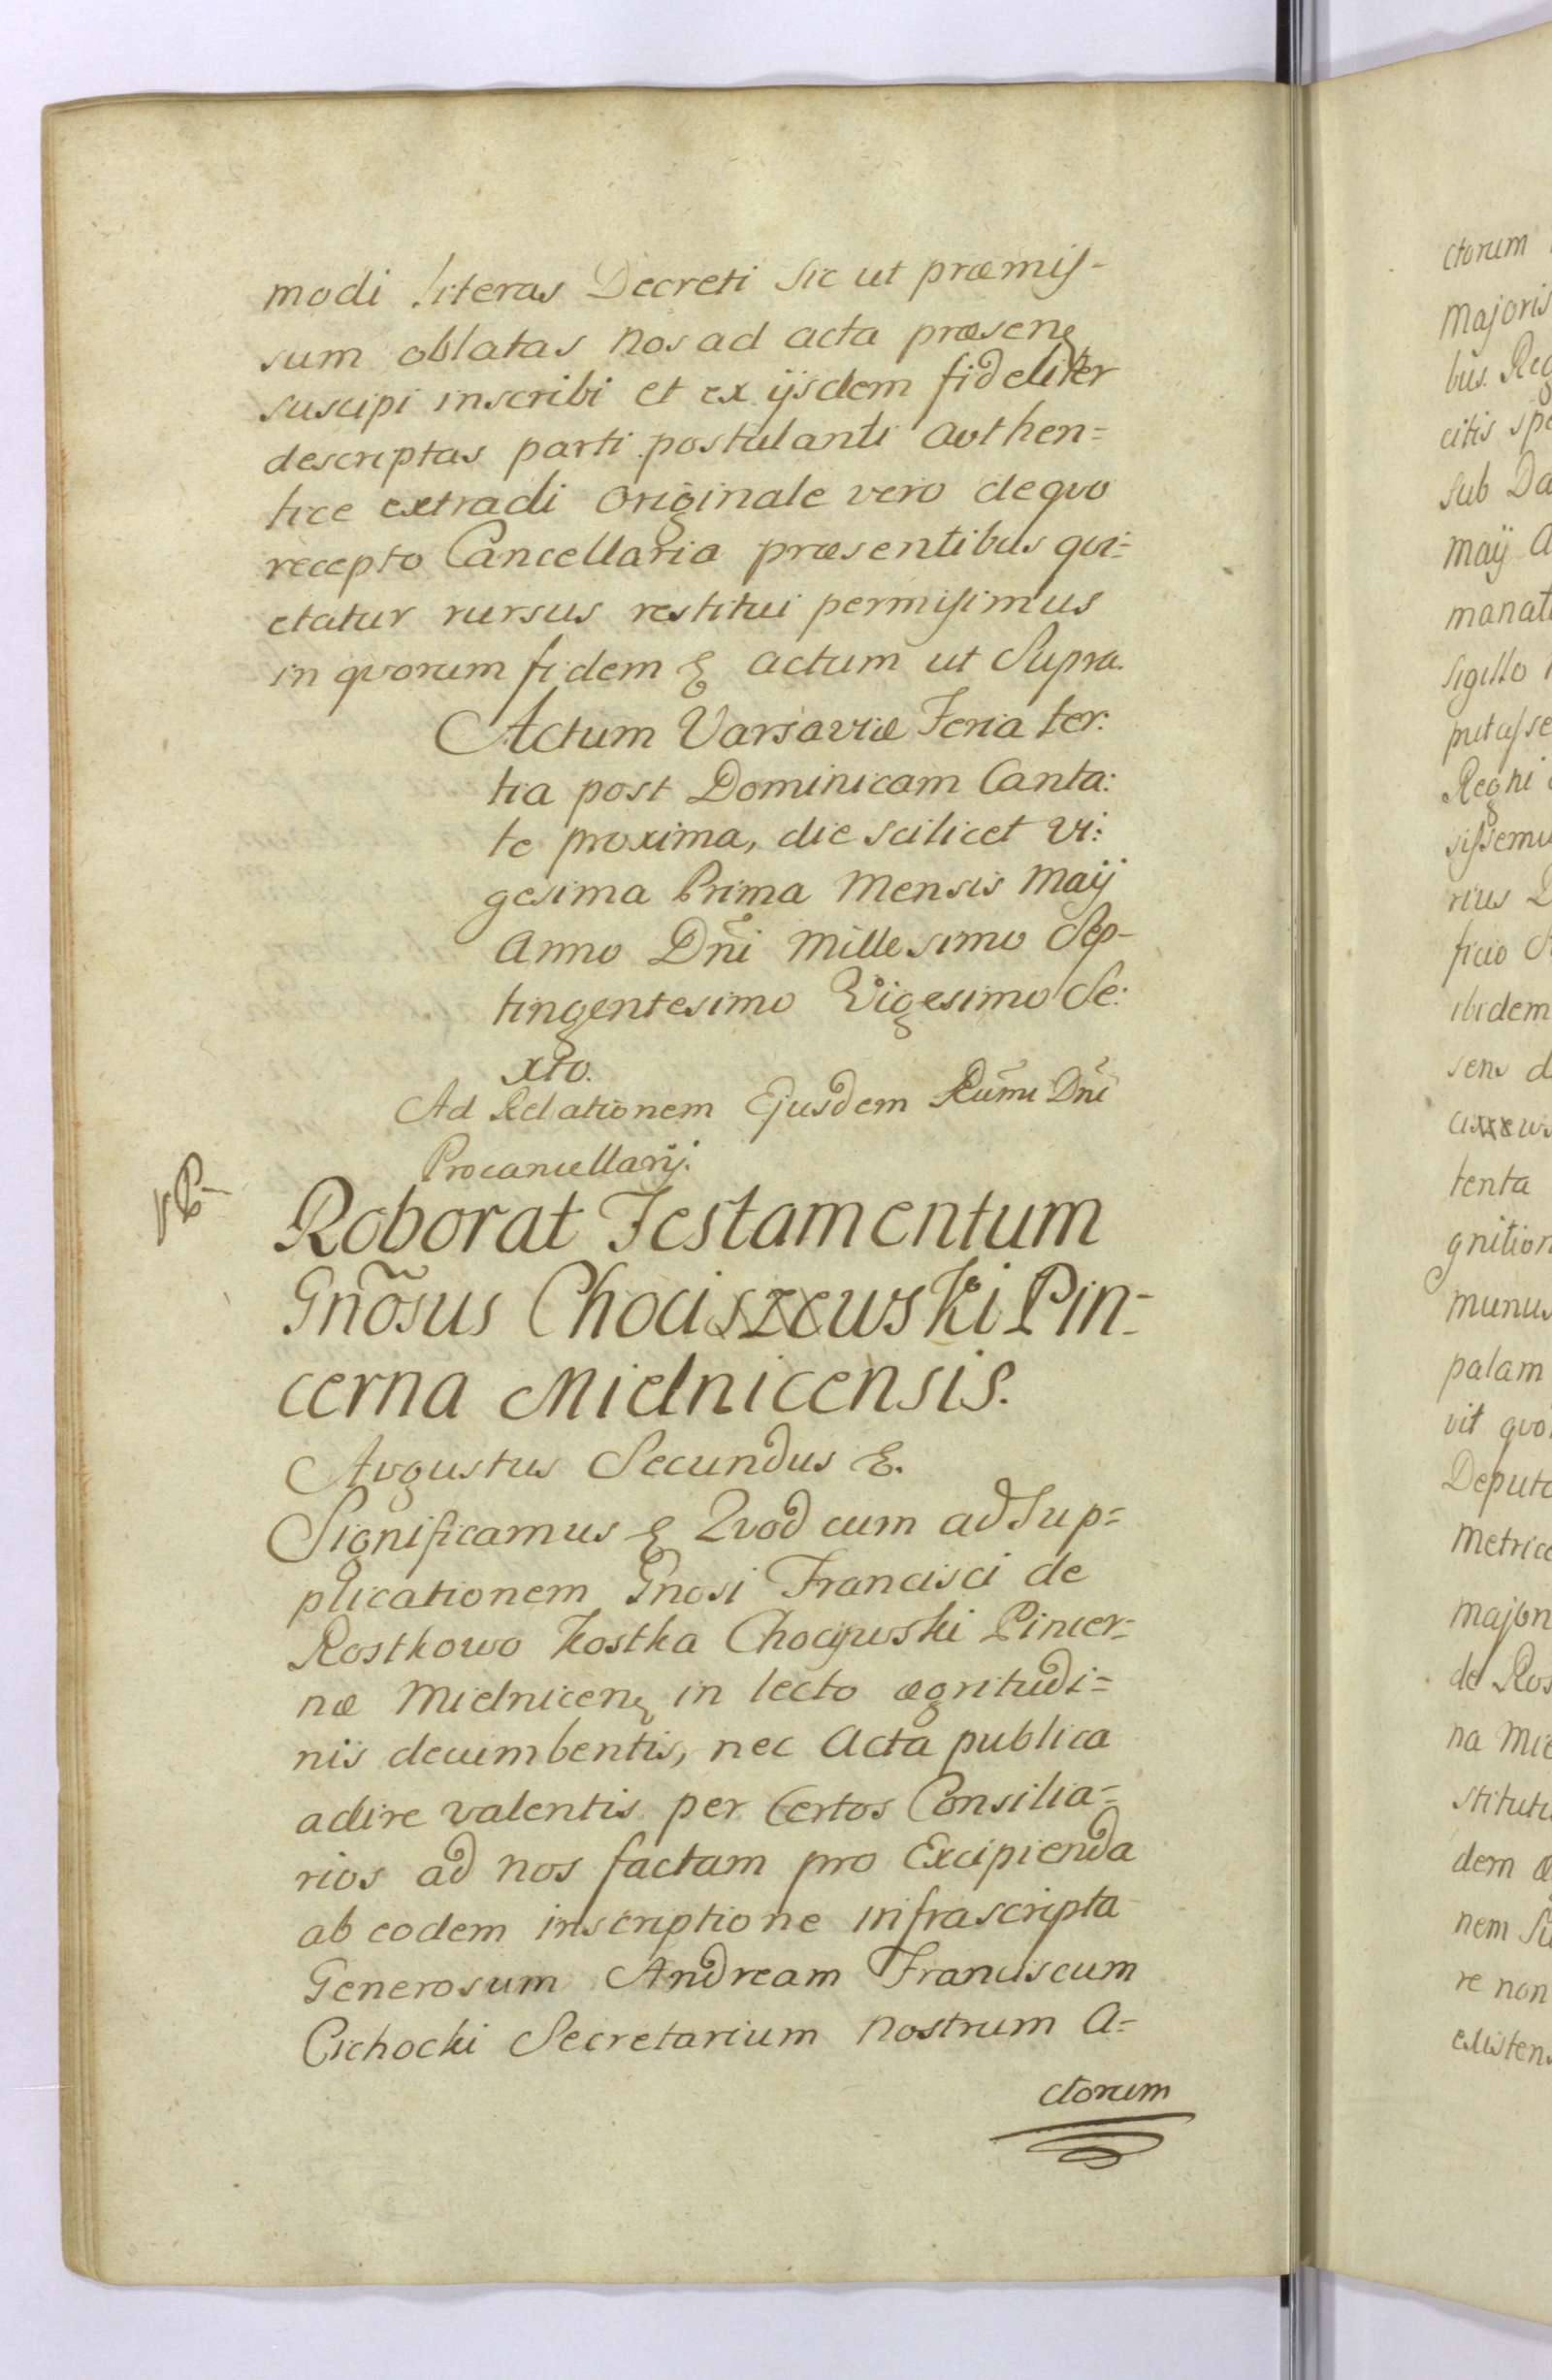 modi literas Decreti sic ut præmis-
sum oblatas nos ad acta præsenꝫ
suscipi inscribi et ex ijsdem fideliter
descriptas parti postulanti authen=
tice extradi originale vero de quo
recepto Cancellaria præsentibus qui=
etatur rursus restitui permisimus
in quorum fidem & actum ut Supra.
Actum Varsaviæ Feria ter:
tia post Dominicam Canta:
te proxima, die scilicet vi:
gesima Prima Mensis Maÿ
Anno Dñi Millesimo Sep-
tingentesimo Vigesimo Se:
xto.
Ad Relationem Ejusdem Rũmi Dñi
Procancellarÿ.
Roborat Testamentum
Gnõsus Chociszewski Pin-
cerna Mielnicensis.
Augustus Secundus &.
Significamus & Quod cum ad Sup=
plicationem Gnosi Francisci de
Rostkowo Kostka Chocijwski Pincer=
næ Mielnicenꝫ in lecto ægritudi=
nis decumbentis, nec Acta publica
adire valentis per Certos Consilia=
rios ad nos factam pro Excipienda
ab eodem inscriptione infrascripta
Generosum Andream Franciscum
Cichocki Secretarium Nostrum A=
ctorum
ctorum
Majoris
bus. Reg
citis spe
sub Da
Maÿ A
manat
sigillo
putasse
Regni
sissemu
rius
ficio
ibidem
sens d
tenta
gnition
munus
palam
vit quo
Deputa
Metrice
major
de Ros
na Mie
stitutu
dem æ
nem
re non
existen